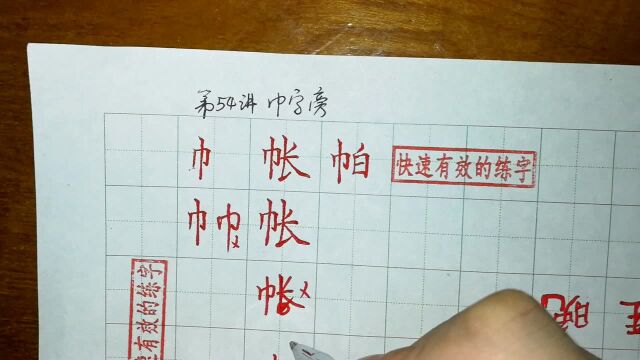 第54讲 巾字旁
巾 帐 帕 快速有效的练字
巾 巾x 帐
帐x
快速有效的练字
晚